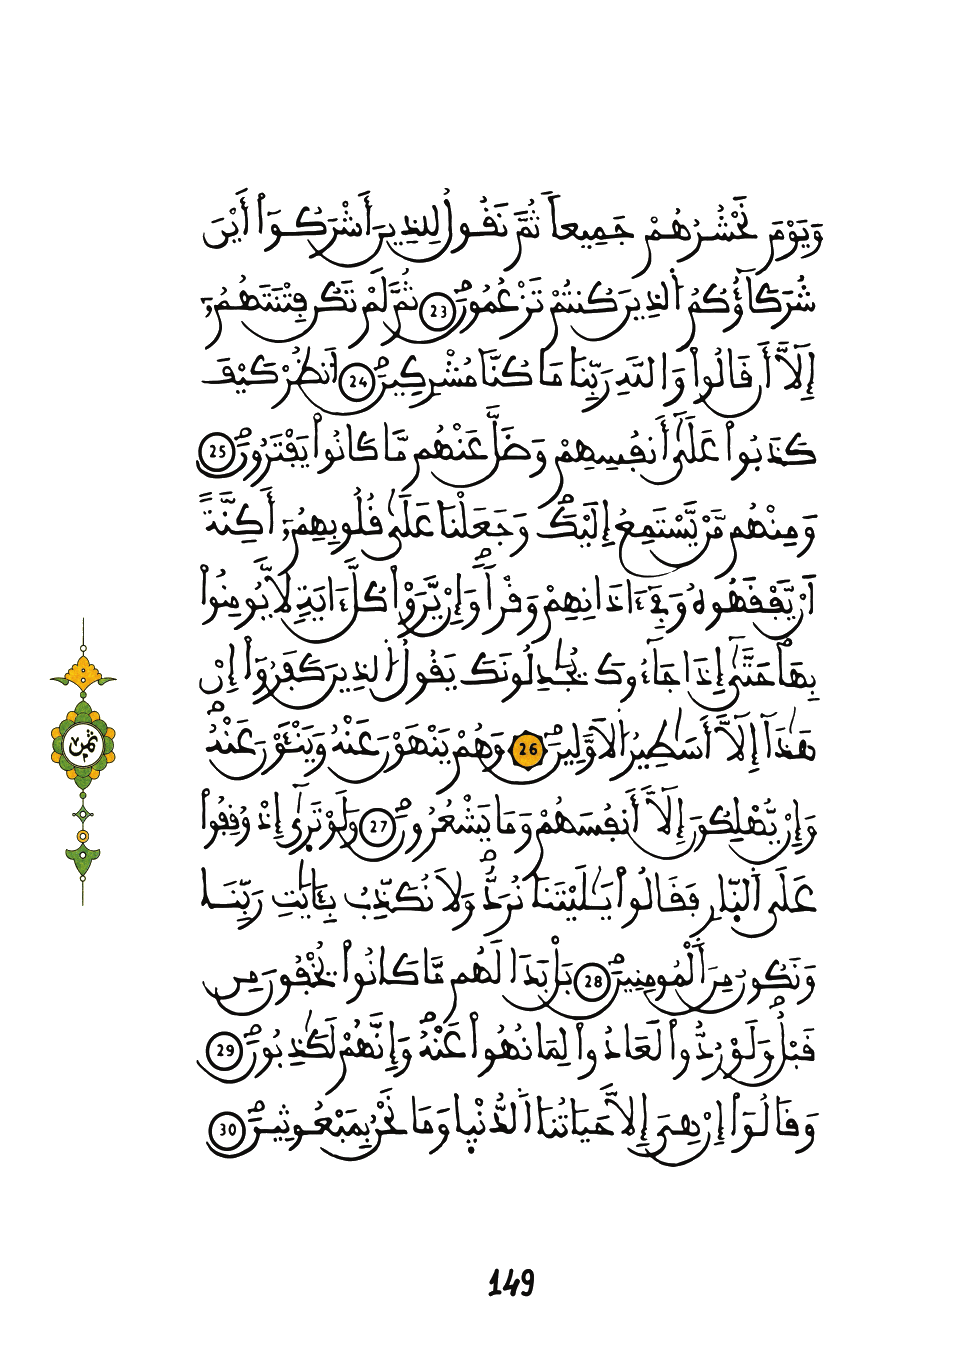 وَيَوْمَ نَحْشُرُهُمْ جَمِيعاً ثُمَّ نَقُولُ لِلذِينَ أَشْرَكُوٓاْ أَيْنَ
شُرَكَآؤُكُمُ اُ۬لذِينَ كُنتُمْ تَزْعُمُونَۖ 23 ثُمَّ لَمْ تَكُن فِتْنَتَهُمُۥٓ
إِلَّآ أَن قَالُواْ وَاللَّهِ رَبِّنَا مَا كُنَّا مُشْرِكِينَۖ 24 اَ۟نظُرْ كَيْفَ
كَذَبُواْ عَلَيٰٓ أَنفُسِهِمْ وَضَلَّ عَنْهُم مَّا كَانُواْ يَفْتَرُونَۖ 25
وَمِنْهُم مَّنْ يَّسْتَمِعُ إِلَيْكَۖ وَجَعَلْنَا عَلَيٰ قُلُوبِهِمُۥٓ أَكِنَّةً
اَنْ يَّفْقَهُوهُ وَفِےٓ ءَاذَانِهِمْ وَقْراٗۖ وَإِنْ يَّرَوْاْ كُلَّ ءَايَةٖ لَّا يُومِنُواْ
بِهَاۖ حَتَّيٰٓ إِذَا جَآءُوكَ يُجَٰدِلُونَكَ يَقُولُ اُ۬لذِينَ كَفَرُوٓاْ إِنْ
هَٰذَآ إِلَّآ أَسَٰطِيرُ اُ۬لَاوَّلِينَۖ 26 وَهُمْ يَنْهَوْنَ عَنْهُ وَيَنْـَٔوْنَ عَنْهُۖ
وَإِنْ يُّهْلِكُونَ إِلَّآ أَنفُسَهُمْ وَمَا يَشْعُرُونَۖ 27 وَلَوْ تَر۪يٰٓ إِذْ وُقِفُواْ
عَلَي اَ۬لنّ۪ارِ فَقَالُواْ يَٰلَيْتَنَا نُرَدُّۖ وَلَا نُكَذِّبُ بِـَٔايَٰتِ رَبِّنَا
وَنَكُونُ مِنَ اَ۬لْمُومِنِينَۖ 28 بَلْ بَدَا لَهُم مَّا كَانُواْ يُخْفُونَ مِن
قَبْلُۖ وَلَوْ رُدُّواْ لَعَادُواْ لِمَا نُهُواْ عَنْهُۖ وَإِنَّهُمْ لَكَٰذِبُونَۖ 29
وَقَالُوٓاْ إِنْ هِيَ إِلَّا حَيَاتُنَا اَ۬لدُّنْي۪ا وَمَا نَحْنُ بِمَبْعُوثِينَۖ 30
ثمن
149